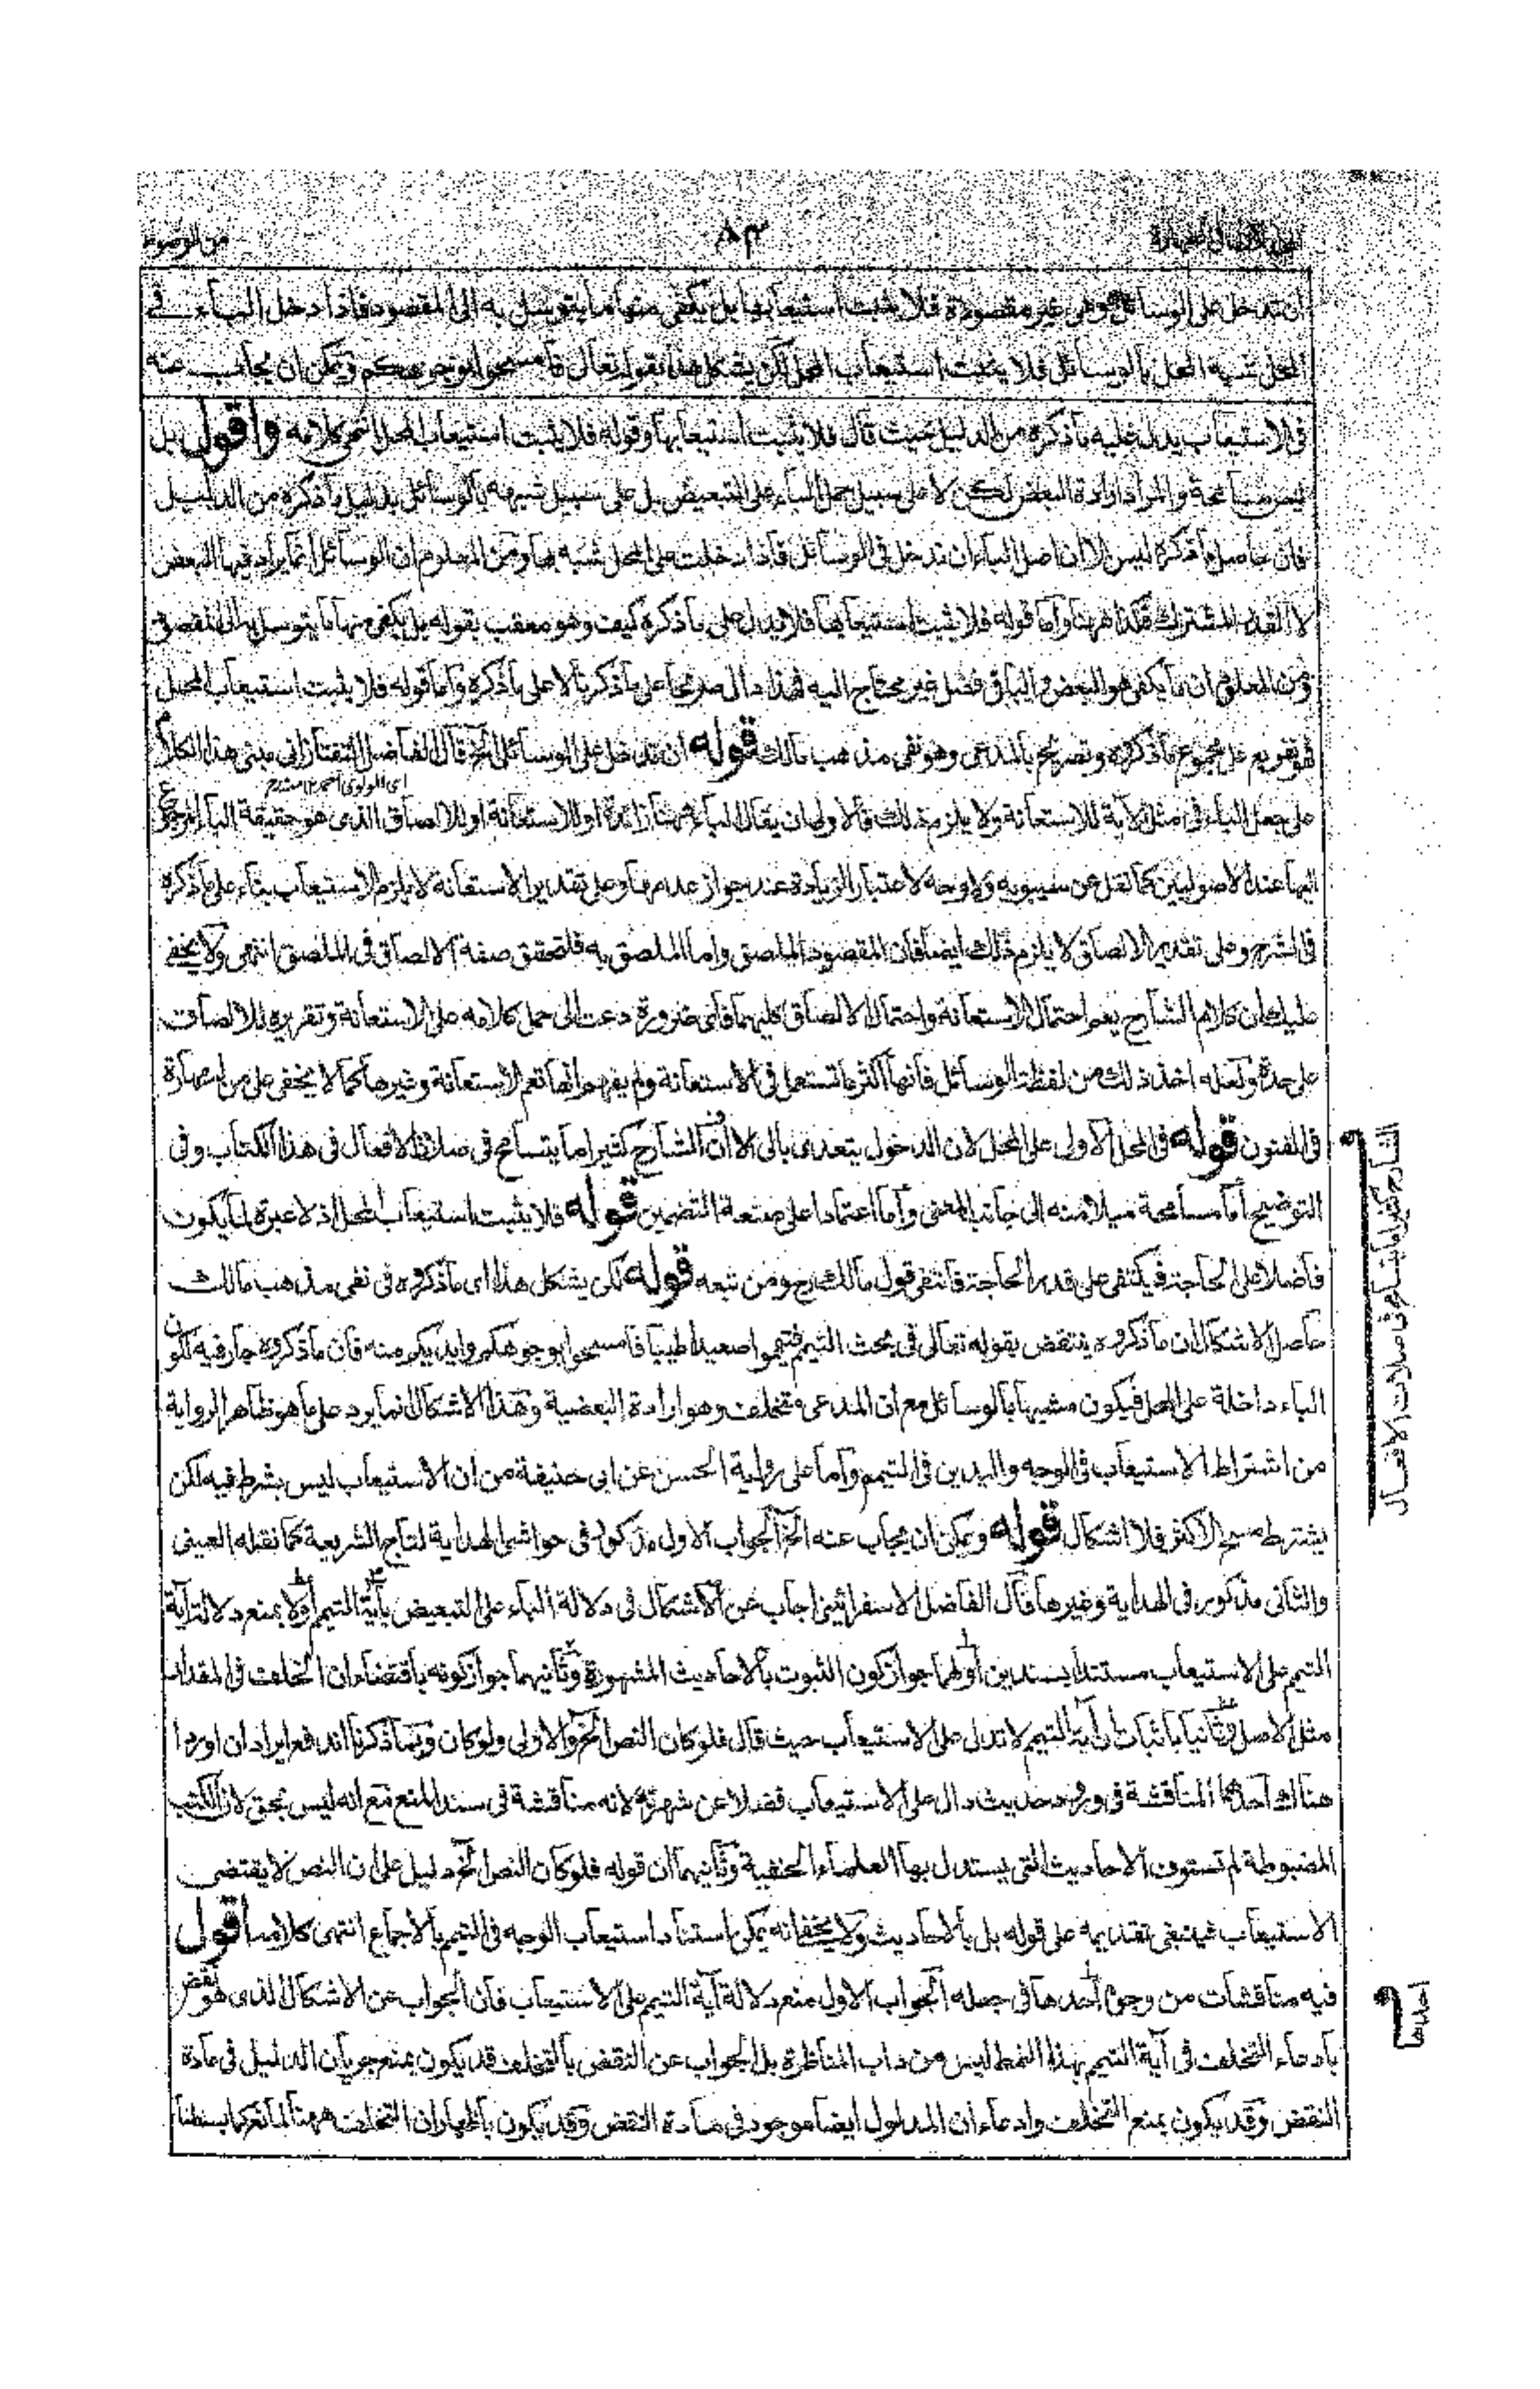 ٨٣
من الوضوء
ان تدخل على الوسائل وهى غير مقصودة فلا يثبت استيعابها بل يكفى منها ما يتوسل به الى المقصود فاذا دخل الباء فى
المحل شبه المحل بالوسائل فلا يثبت استيعاب المحل لكن يشكل هذا بقوله تعالى فامسحوا بوجوهكم ويمكن ان يجاب عنه
فى الاستيعاب يدل عليه ما ذكره من الدليل حيث قال فلا يثبت استيعابها وقوله فلا يثبت استيعاب المحل انتهى كلامه واقول بل
ليس مسامحة والمراد ارادة البعض لكن لا على سبيل حمل الباء على التبعيض بل على سبيل تشبيهه بالوسائل بدليل ما ذكره من الدليل
فان حاصل ما ذكره ليس الا ان اصل الباء ان تدخل فى الوسائل فاذا دخلت على المحل شبه بها ومن المعلوم ان الوسائل انما يراد فيها البعض
لا القدر المشترك فكذا ههنا واما قوله فلا يثبت استيعابها فلا يدل على ما ذكره كيف وهو معقب بقوله بل يكفى منها ما يتوسل به الى المقصود
ومن المعلوم ان ما يكفى هو البعض والباقى فضل غير محتاج اليه فهذا دال صريحا على ما ذكرنا لا على ما ذكره واما قوله فلا يثبت استيعاب المحل
فهو تفريع على مجموع ما ذكره وتصريح بالمدعى وهو نفى مذهب مالك قوله ان تدخل على الوسائل الخ قال الفاضل التفتازانى مبنى هذا الكلام
على جعل الباء فى مثل الآية للاستعانة ولا يلزم ذلك فالاولى ان يقال الباء ههنا زائدة او للاستعانة او للالصاق الذى هو حقيقة الباء المرجوع
اليها عند الاصوليين كما نقل عن سيبويه ولا وجه لاعتبار الزيادة عند جواز عدمها وعلى تقدير الاستعانة لا يلزم الاستيعاب بناء على ما ذكره
فى الشرح وعلى تقدير الالصاق لا يلزم ذلك ايضا فان المقصود الملصق واما الملصق به فلتحقق صفة الالصاق فى الملصق انتهى ولا يخفى
عليك ان كلام الشارح يعم احتمال الاستعانة واحتمال الالصاق كليهما فاى ضرورة دعت الى حمل كلامه على الاستعانة وتقريره للالصاق
على حدة ولعله اخذ ذلك من لفظة الوسائل فانها اكثر ما تستعمل فى الاستعانة ولم يفهم انها تعم الاستعانة وغيرها كما لا يخفى على من له مهارة
فى الفنون قوله فى المحل الاولى على المحل لان الدخول يتعدى بالى الا ان الشارح كثيرا ما يتسامح فى صلات الافعال فى هذا الكتاب وفى
التوضيح اما مسامحة ميلا منه الى جانب المعنى واما اعتمادا على صنعة التضمين قوله فلا يثبت استيعاب المحل اذ لا عبرة لما يكون
فاضلا على الحاجة فيكتفى على قدر الحاجة فانتفى قول مالك رح ومن تبعه قوله لكن يشكل هذا اى ما ذكروه فى نفى مذهب مالك
حاصل الاشكال ان ما ذكروه ينتقض بقوله تعالى فى بحث التيمم فتيمموا صعيدا طيبا فامسحوا بوجوهكم وايديكم منه فان ما ذكروه جار فيه لكون
الباء داخلة على المحل فيكون مشبها بالوسائل مع ان المدعى متخلف وهو ارادة البعضية وهذا الاشكال انما يرد على ما هو ظاهر الرواية
من اشتراط الاستيعاب فى الوجه واليدين فى التيمم واما على رواية الحسن عن ابى حنيفة من ان الاستيعاب ليس بشرط فيه لكن
يشترط مسح الاكثر فلا اشكال قوله ويمكن ان يجاب عنه الخ الجواب الاول مذكور فى حواشى الهداية لتاج الشريعة كما نقله العينى
والثانى مذكور فى الهداية وغيرها قال الفاضل الاسفرائينى اجاب عن الاشكال فى دلالة الباء على التبعيض بآية التيمم اولا بمنع دلالة آية
التيمم على الاستيعاب مستندا بسندين اولهما جواز كون الثبوت بالاحاديث المشهورة وثانيهما جواز كونه باقتضاء ان الخلف فى المقدار
مثل الاصل وثانيا باثبات ان آية التيمم لا تدل على الاستيعاب حيث قال فلو كان النص الخ والاولى ولو كان وبما ذكرنا اندفع ايرادان اوردا
هناك احدهما المناقشة فى ورود حديث دال على الاستيعاب فضلا عن شهرته لانه مناقشة فى سند المنع مع انه ليس بحق لان الكتب
المضبوطة لم تستوف الاحاديث التى يستدل بها العلماء الحنفية وثانيهما ان قوله فلو كان النص الخ دليل على ان النص لا يقتضى
الاستيعاب فينبغى تقديمه على قوله بل بالاحاديث ولا يخفى انه يمكن استناد استيعاب الوجه فى التيمم بالاجماع انتهى كلامه اقول
فيه مناقشات من وجوه احدها فى جعله الجواب الاول منع دلالة آية التيمم على الاستيعاب فان الجواب عن الاشكال الذى هو نقض
بادعاء التخلف فى آية التيمم بهذا النمط ليس من داب المناظرة بل الجواب عن النقض بالتخلف قد يكون بمنع جريان الدليل فى مادة
النقض وقد يكون بمنع التخلف وادعاء ان المدلول ايضا موجود فى مادة النقض وقد يكون باظهار ان التخلف ههنا لمانع كما بسطنا
الشارح كثيرا ما يتسامح فى صلات الافعال
احدها